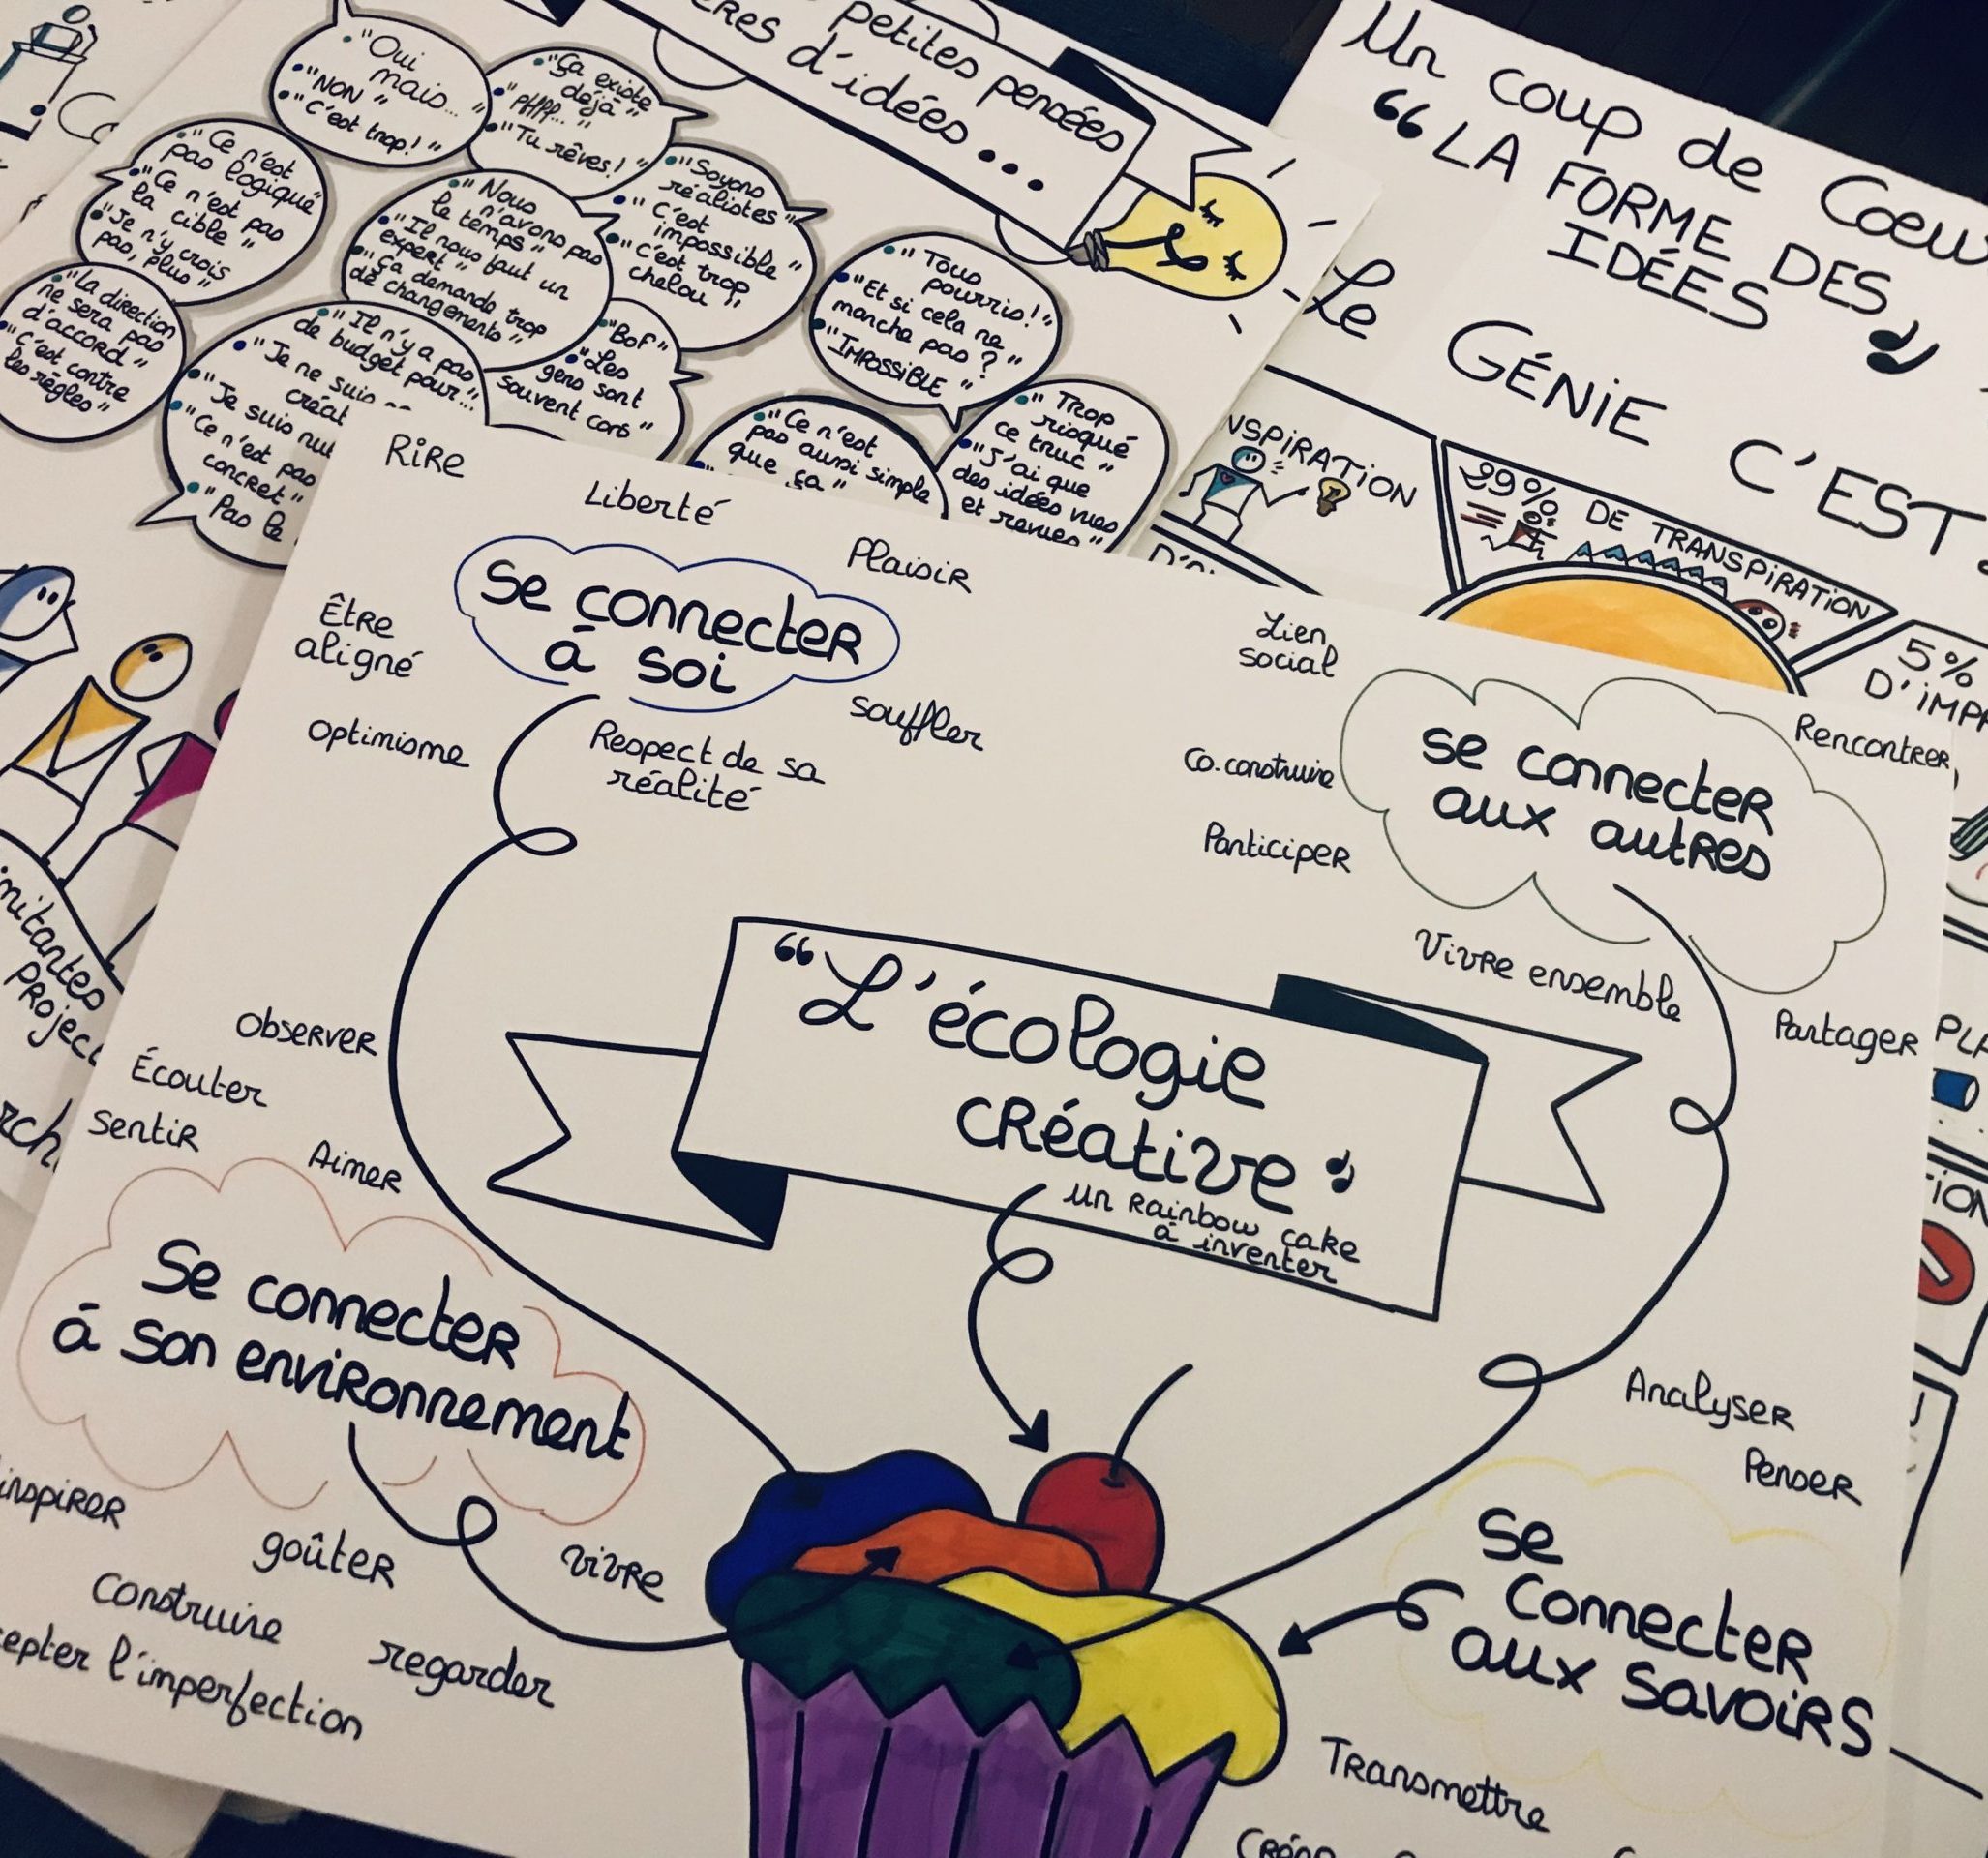 petites pensées
d'idées...
"Oui
mais... "
"NON"
"C'est trop!"
"Ça existe
déjà"
"Pffff..."
"Tu rêves!"
"Ce n'est
pas logique"
"Ce n'est pas
la cible"
"Je n'y crois
pas, plus"
"Nous
n'avons pas
le temps"
"Il nous faut un
expert"
"Ça demande trop
de changements"
"Soyons
réalistes"
"C'est
impossible"
"C'est trop
chelou"
"La direction
ne sera pas
d'accord"
"C'est contre
les règles"
"Il n'y a pas
de budget pour..."
"Je ne suis
"Je suis nul
"Ce n'est pas
concret"
"Pas le
"Bof"
"Les
gens sont
souvent cons"
"Tous
pourris!"
"Et si cela ne
marche pas?"
"IMPOSSIBLE"
"Ce n'est
pas aussi simple
que ça"
"Trop
risqué
ce truc"
"J'ai que
des idées vues
et revues"
Un coup de Cœur
"LA FORME DES
IDÉES
Le GÉNIE C'EST
29% DE TRANSPIRATION
5%
Rire
Liberté
Plaisir
Se connecter
à soi
Être
aligné
Optimisme
Respect de sa
réalité
Souffler
Lien
social
Co.construire
Participer
Se connecter
aux autres
Rencontrer
Vivre ensemble
Partager
"L'écologie
créative"
un rainbow cake
à inventer
Observer
Écouter
Sentir
Aimer
Se connecter
à son environnement
inspirer
goûter
vivre
Construire
regarder
l'imperfection
Analyser
Penser
Se
connecter
aux savoirs
Transmettre